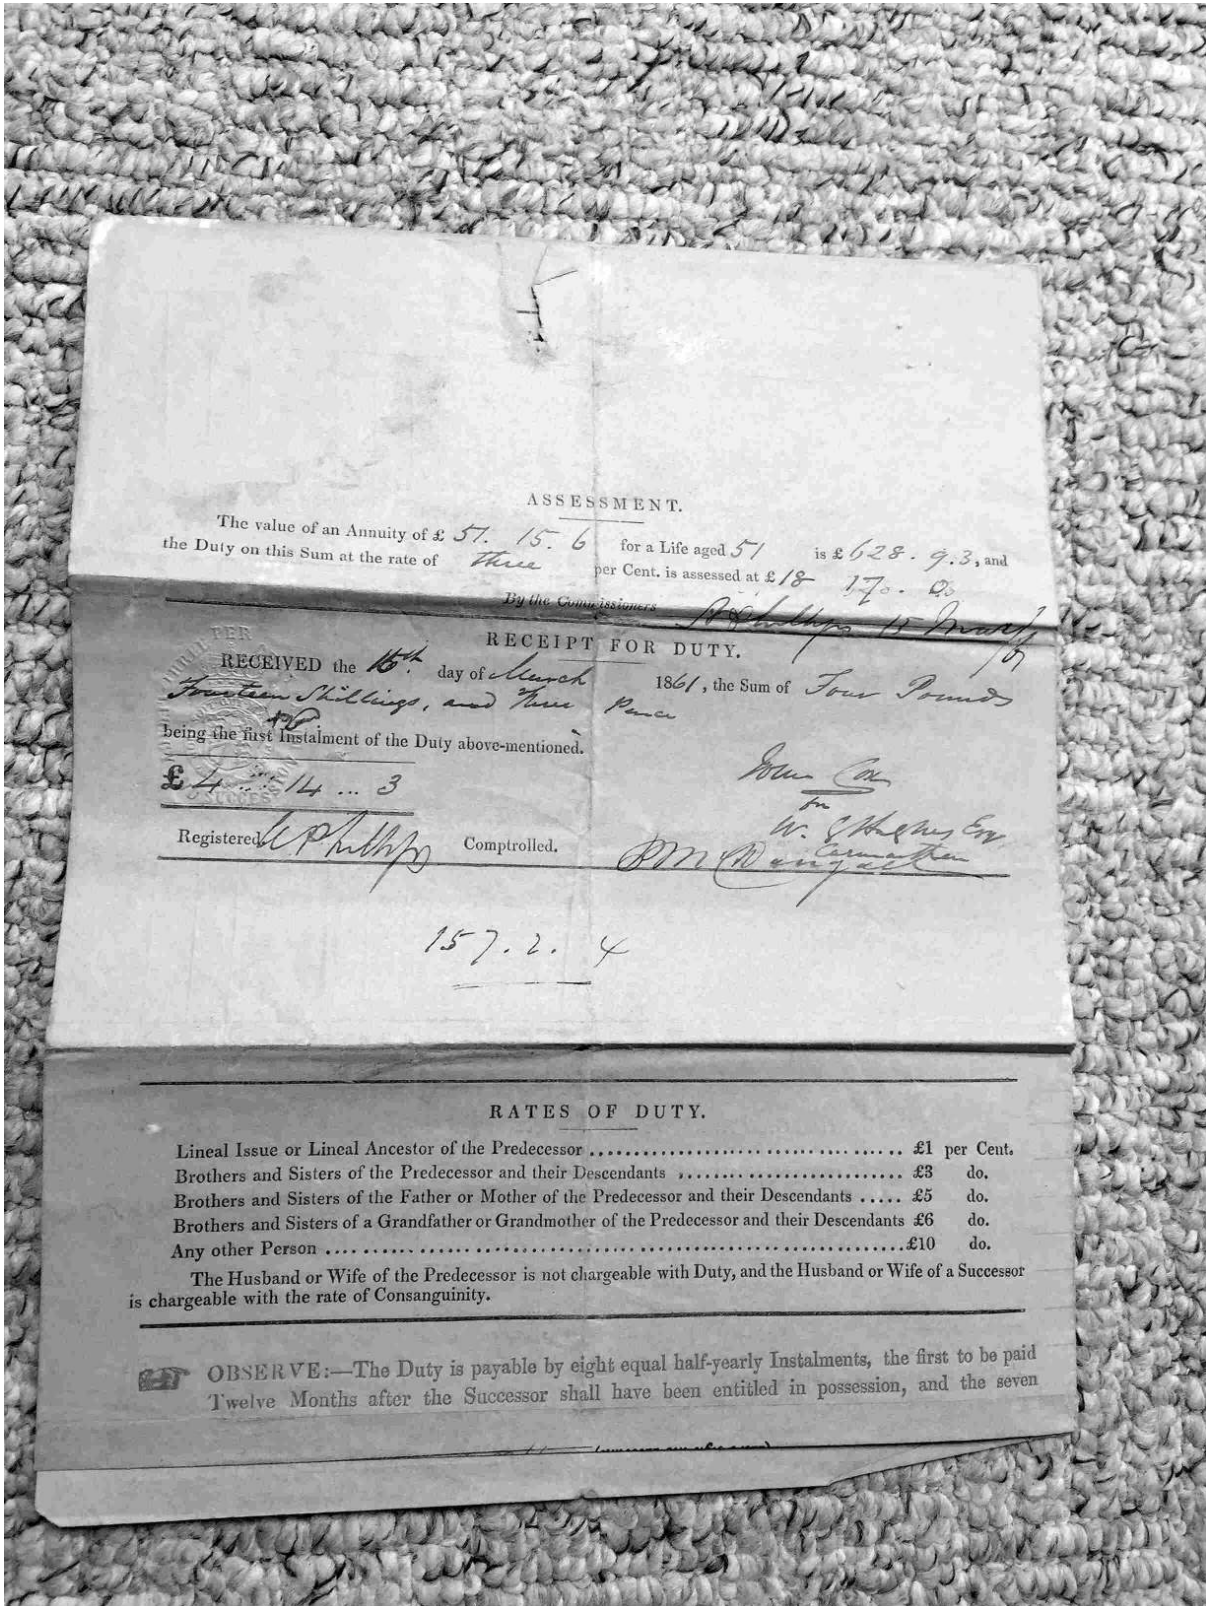 ASSESSMENT.
The value of an Annuity of £ 51. 15. 6 for a Life aged 51 is £ 628. 9. 3, and
the Duty on this Sum at the rate of three per Cent. is assessed at £ 18 17. 0
By the Commissioners Phillips 15 March
RECEIPT FOR DUTY.
THREE PER
RECEIVED the 15th day of March 1861, the Sum of Four Pounds
Fourteen Shillings, and Three Pence
being the first Instalment of the Duty above-mentioned.
£ 4 ... 14 ... 3
SUCCESSION
John Cox
for
W. Hughes Esq
Carmarthen
Registered Phillips Comptrolled. McDougall
157. 2. 4
RATES OF DUTY.
Lineal Issue or Lineal Ancestor of the Predecessor ........ £1 per Cent.
Brothers and Sisters of the Predecessor and their Descendants ........ £3 do.
Brothers and Sisters of the Father or Mother of the Predecessor and their Descendants ..... £5 do.
Brothers and Sisters of a Grandfather or Grandmother of the Predecessor and their Descendants £6 do.
Any other Person ........ £10 do.
The Husband or Wife of the Predecessor is not chargeable with Duty, and the Husband or Wife of a Successor
is chargeable with the rate of Consanguinity.
OBSERVE:—The Duty is payable by eight equal half-yearly Instalments, the first to be paid
Twelve Months after the Successor shall have been entitled in possession, and the seven